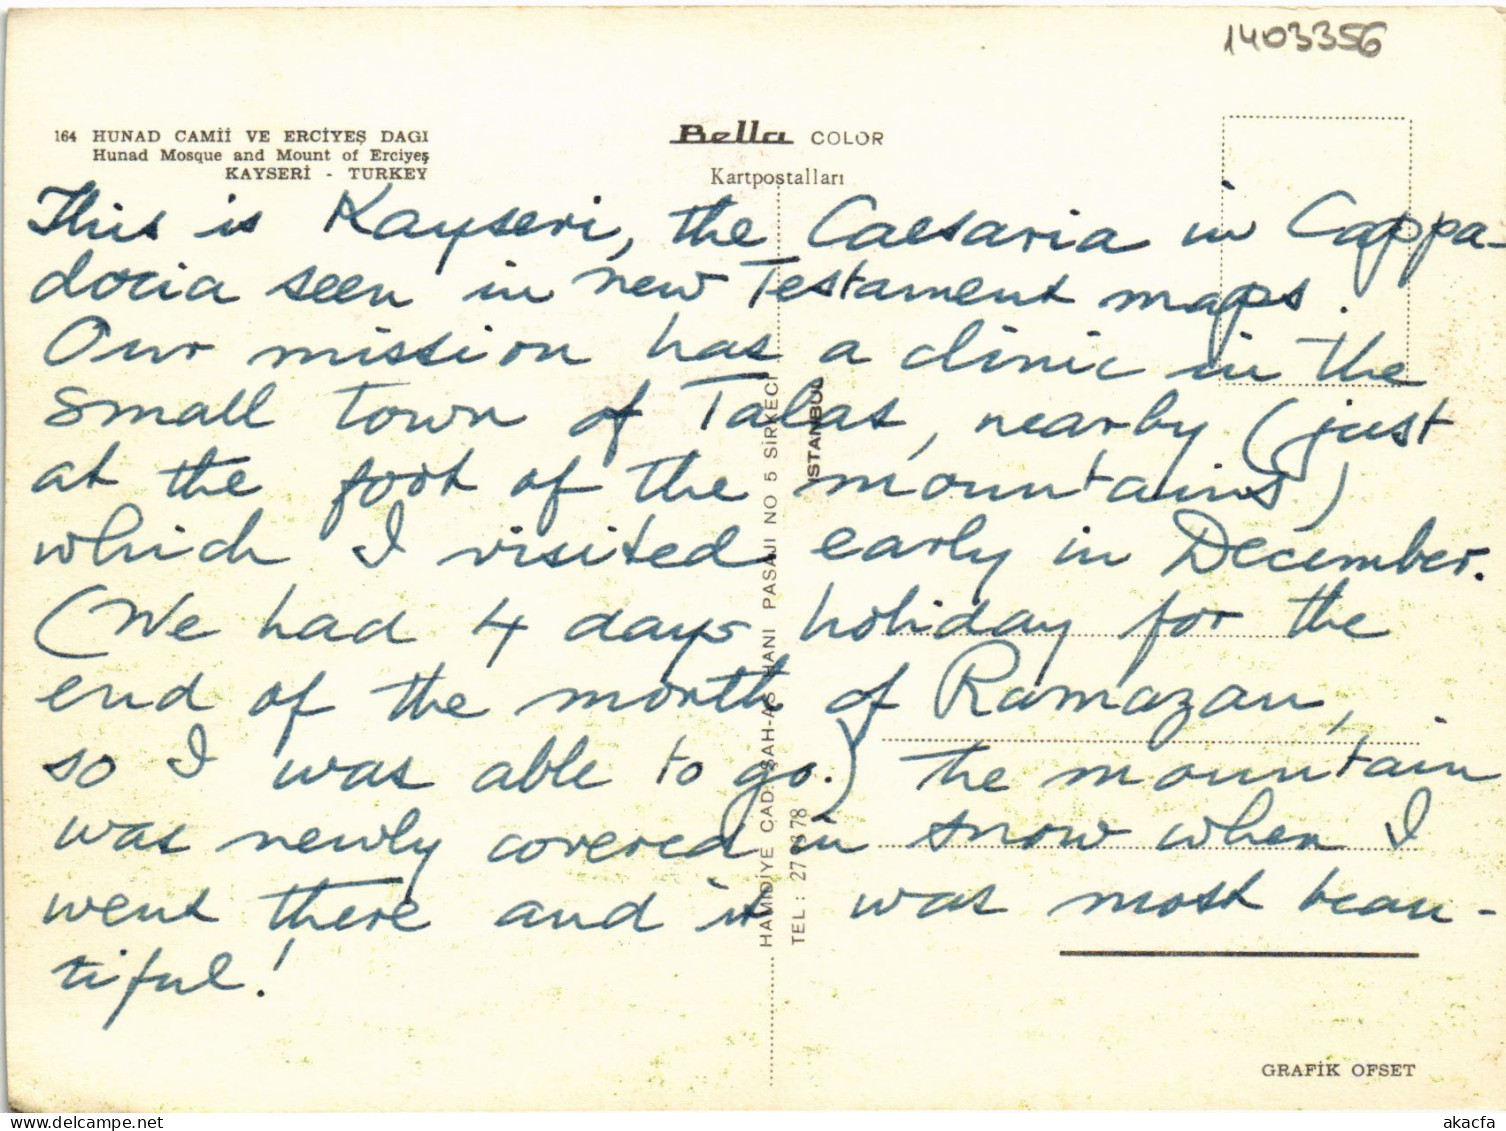 1403356
164 HUNAD CAMİİ VE ERCİYEŞ DAGI
Hunad Mosque and Mount of Erciyeş
KAYSERİ - TURKEY
Bella COLOR
Kartpostalları
This is Kayseri, the Caesaria in Cappa-
docia seen in new Testament maps.
Our mission has a clinic in the
small town of Talas, nearby (just
at the foot of the mountains)
which I visited early in December.
(We had 4 days holiday for the
end of the month of Ramazan,
so I was able to go.) The mountain
was newly covered in snow when I
went there and it was most beau-
tiful!
HAMİDİYE CAD. ŞAH-AS HANI PASAJI NO 5 SİRKECİ
İSTANBUL
TEL : 27 83 78
GRAFİK OFSET
akacfa